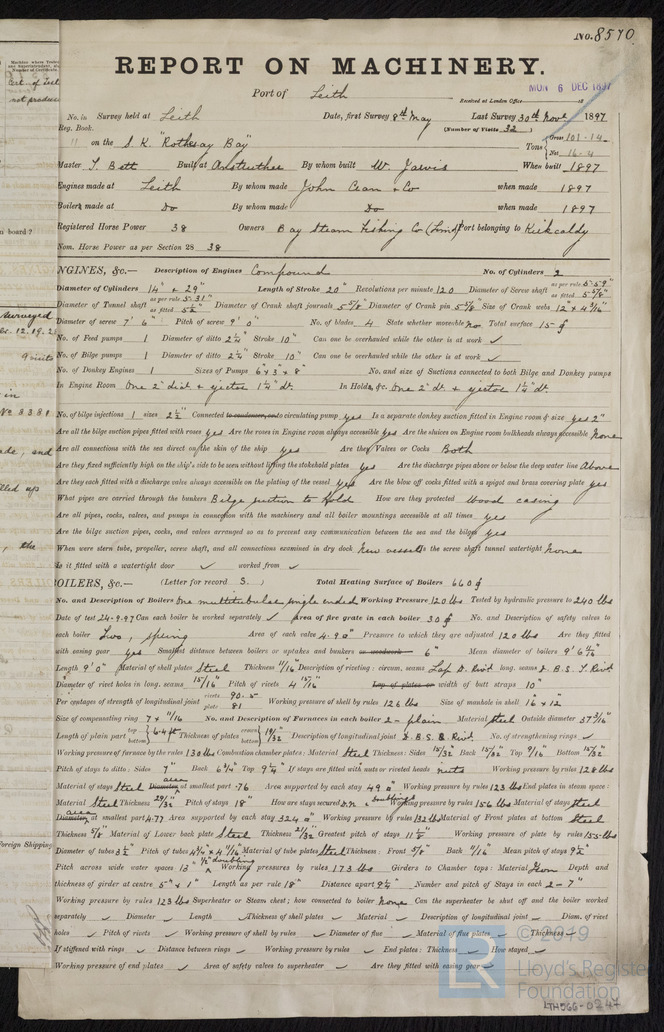 No. 8570
REPORT ON MACHINERY.
Port of Leith
Received at London Office MON 6 DEC 1897 18
No. in Survey held at Leith Date, first Survey 8th May Last Survey 30th Novr 1897
Reg. Book. (Number of Visits 32)
" on the S.K. "Rothesay Bay" Tons Gross 101-14 Net 16-4
Master T. Bett Built at Anstruther By whom built W. Jarvis When built 1897
Engines made at Leith By whom made John Cran & Co when made 1897
Boilers made at Do By whom made Do when made 1897
Registered Horse Power 38 Owners Bay Steam Fishing Co (Limd) Port belonging to Kirkcaldy
Nom. Horse Power as per Section 28 38
ENGINES, &c.— Description of Engines Compound No. of Cylinders 2
Diameter of Cylinders 14" & 29" Length of Stroke 20" Revolutions per minute 120 Diameter of Screw shaft as per rule 5.59" as fitted 5 5/8"
Diameter of Tunnel shaft as per rule 5.31" as fitted 5½" Diameter of Crank shaft journals 5 5/8" Diameter of Crank pin 5 5/8" Size of Crank webs 12" x 4 3/16"
Diameter of screw 7' 6" Pitch of screw 9' 0" No. of blades 4 State whether moveable no Total surface 15
No. of Feed pumps 1 Diameter of ditto 2¼" Stroke 10" Can one be overhauled while the other is at work ✓
No. of Bilge pumps 1 Diameter of ditto 2¼" Stroke 10" Can one be overhauled while the other is at work ✓
No. of Donkey Engines 1 Sizes of Pumps 6" x 3" x 8" No. and size of Suctions connected to both Bilge and Donkey pumps
In Engine Room One 2" diar. & ejector 1¼" dr. In Holds, &c. One 2" dr. & ejector 1¼" dr.
No. of bilge injections 1 sizes 2½" Connected to condenser, or to circulating pump yes Is a separate donkey suction fitted in Engine room & size yes 2"
Are all the bilge suction pipes fitted with roses yes Are the roses in Engine room always accessible yes Are the sluices on Engine room bulkheads always accessible None
Are all connections with the sea direct on the skin of the ship yes Are they Valves or Cocks Both
Are they fixed sufficiently high on the ship's side to be seen without lifting the stokehold plates yes Are the discharge pipes above or below the deep water line Above
Are they each fitted with a discharge valve always accessible on the plating of the vessel yes Are the blow off cocks fitted with a spigot and brass covering plate yes
What pipes are carried through the bunkers Bilge suction to Hold How are they protected Wood casing
Are all pipes, cocks, valves, and pumps in connection with the machinery and all boiler mountings accessible at all times yes
Are the bilge suction pipes, cocks, and valves arranged so as to prevent any communication between the sea and the bilges yes
When were stern tube, propeller, screw shaft, and all connections examined in dry dock New vessel Is the screw shaft tunnel watertight None
Is it fitted with a watertight door ✓ worked from ✓
BOILERS, &c.— (Letter for record S.) Total Heating Surface of Boilers 660
No. and Description of Boilers One multitubular single ended Working Pressure 120 lbs Tested by hydraulic pressure to 240 lbs
Date of test 24-9-97 Can each boiler be worked separately ✓ Area of fire grate in each boiler 30 No. and Description of safety valves to
each boiler Two, spring Area of each valve 4.9 Pressure to which they are adjusted 120 lbs Are they fitted
with easing gear yes Smallest distance between boilers or uptakes and bunkers or woodwork 6" Mean diameter of boilers 9' 6¼"
Length 9' 0" Material of shell plates Steel Thickness 11/16" Description of riveting: circum. seams Lap D. Rivd long. seams D.B.S. T. Rivd
Diameter of rivet holes in long. seams 15/16" Pitch of rivets 4 15/16" Lap of plates or width of butt straps 10"
Per centages of strength of longitudinal joint rivets 90.5 plate 81 Working pressure of shell by rules 126 lbs Size of manhole in shell 16" x 12"
Size of compensating ring 7 x 11/16 No. and Description of Furnaces in each boiler 2 - plain Material Steel Outside diameter 37 3/16"
Length of plain part top bottom 6.4 ft Thickness of plates crown bottom 19/32" Description of longitudinal joint D.B.S.S. Rivd. No. of strengthening rings ✓
Working pressure of furnace by the rules 130 lbs Combustion chamber plates: Material Steel Thickness: Sides 15/32" Back 15/32" Top 9/16" Bottom 15/32"
Pitch of stays to ditto: Sides 7" Back 6¾" Top 9¼" If stays are fitted with nuts or riveted heads nuts Working pressure by rules 128 lbs
Material of stays Steel Diameter area at smallest part .76 Area supported by each stay 49 Working pressure by rules 123 lbs End plates in steam space:
Material Steel Thickness 29/32" Pitch of stays 18" How are stays secured D.N. & doublings Working pressure by rules 156 lbs Material of stays Steel
Diameter area at smallest part 4.77 Area supported by each stay 324 Working pressure by rules 132 lbs Material of Front plates at bottom Steel
Thickness 5/8" Material of Lower back plate Steel Thickness 21/32" Greatest pitch of stays 11½" Working pressure of plate by rules 155 lbs
Diameter of tubes 3½" Pitch of tubes 4¾" x 4 11/16" Material of tube plates Steel Thickness: Front 5/8" Back 11/16" Mean pitch of stays 9½"
Pitch across wide water spaces 13" ½" doubling Working pressures by rules 173 lbs Girders to Chamber tops: Material Iron Depth and
thickness of girder at centre 5" x 1" Length as per rule 18" Distance apart 9¼" Number and pitch of Stays in each 2 - 7"
Working pressure by rules 123 lbs Superheater or Steam chest; how connected to boiler None Can the superheater be shut off and the boiler worked
separately ✓ Diameter ✓ Length ✓ Thickness of shell plates ✓ Material ✓ Description of longitudinal joint ✓ Diam. of rivet
holes ✓ Pitch of rivets ✓ Working pressure of shell by rules ✓ Diameter of flue ✓ Material of flue plates ✓ Thickness
If stiffened with rings ✓ Distance between rings ✓ Working pressure by rules ✓ End plates: Thickness ✓ How stayed ✓
Working pressure of end plates ✓ Area of safety valves to superheater ✓ Are they fitted with easing gear ✓
© 2019
Lloyd's Register
Foundation
LTH566-0247